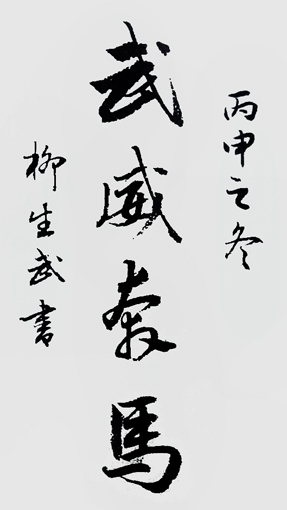 丙申之冬
武威奔馬
柳生武書